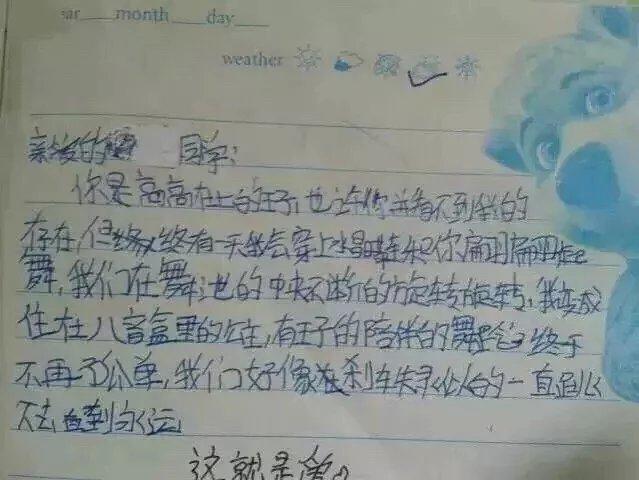 ear month day
weather
亲爱的 同学:
你是高高在上的王子,也许你并看不到我的
存在,但终有一天我会穿上水晶鞋和你翩翩起
舞,我们在舞池的中央不断的旋转旋转,我变成
住在八音盒里的公主,有王子的陪伴的舞 终于
不再孤单,我们好像在刹车失灵似的一直
下去,直到永远
这就是爱。